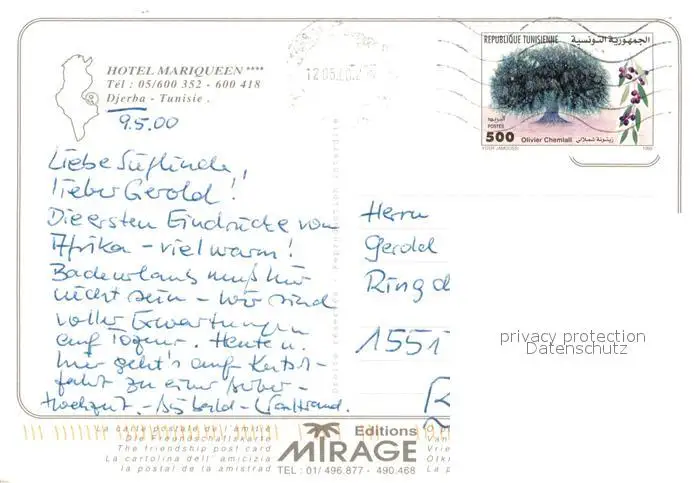 HOTEL MARIQUEEN ****
Tél : 05/600 352 - 600 418
Djerba - Tunisie .
9.5.00
Liebe Sieglinde,
lieber Gerold!
Die ersten Eindrücke von
Afrika - viel warm!
Badeurlaub muß hier
nicht sein - wir sind
voller Erwartungen
auf Tozeur. Heute n.
hier geht's auf Kutsch-
fahrt zu einer
Hochzeit. - bis bald -
REPUBLIQUE TUNISIENNE
الجمهورية التونسية
البريد
POSTES
500
زيتونة شملالي
Olivier Chemlali
YOSR JAMOUSSI
1999
12 05
Reproduction interdite
Herrn
Gerold
Ring
1551
privacy protection
Datenschutz
La carte postale de l'amitié
Die Freundschaftskarte
The friendship post card
La cartolina dell' amicizia
la postal de la amistrad
Editions
MIRAGE
TEL : 01/ 496.877 - 490.468